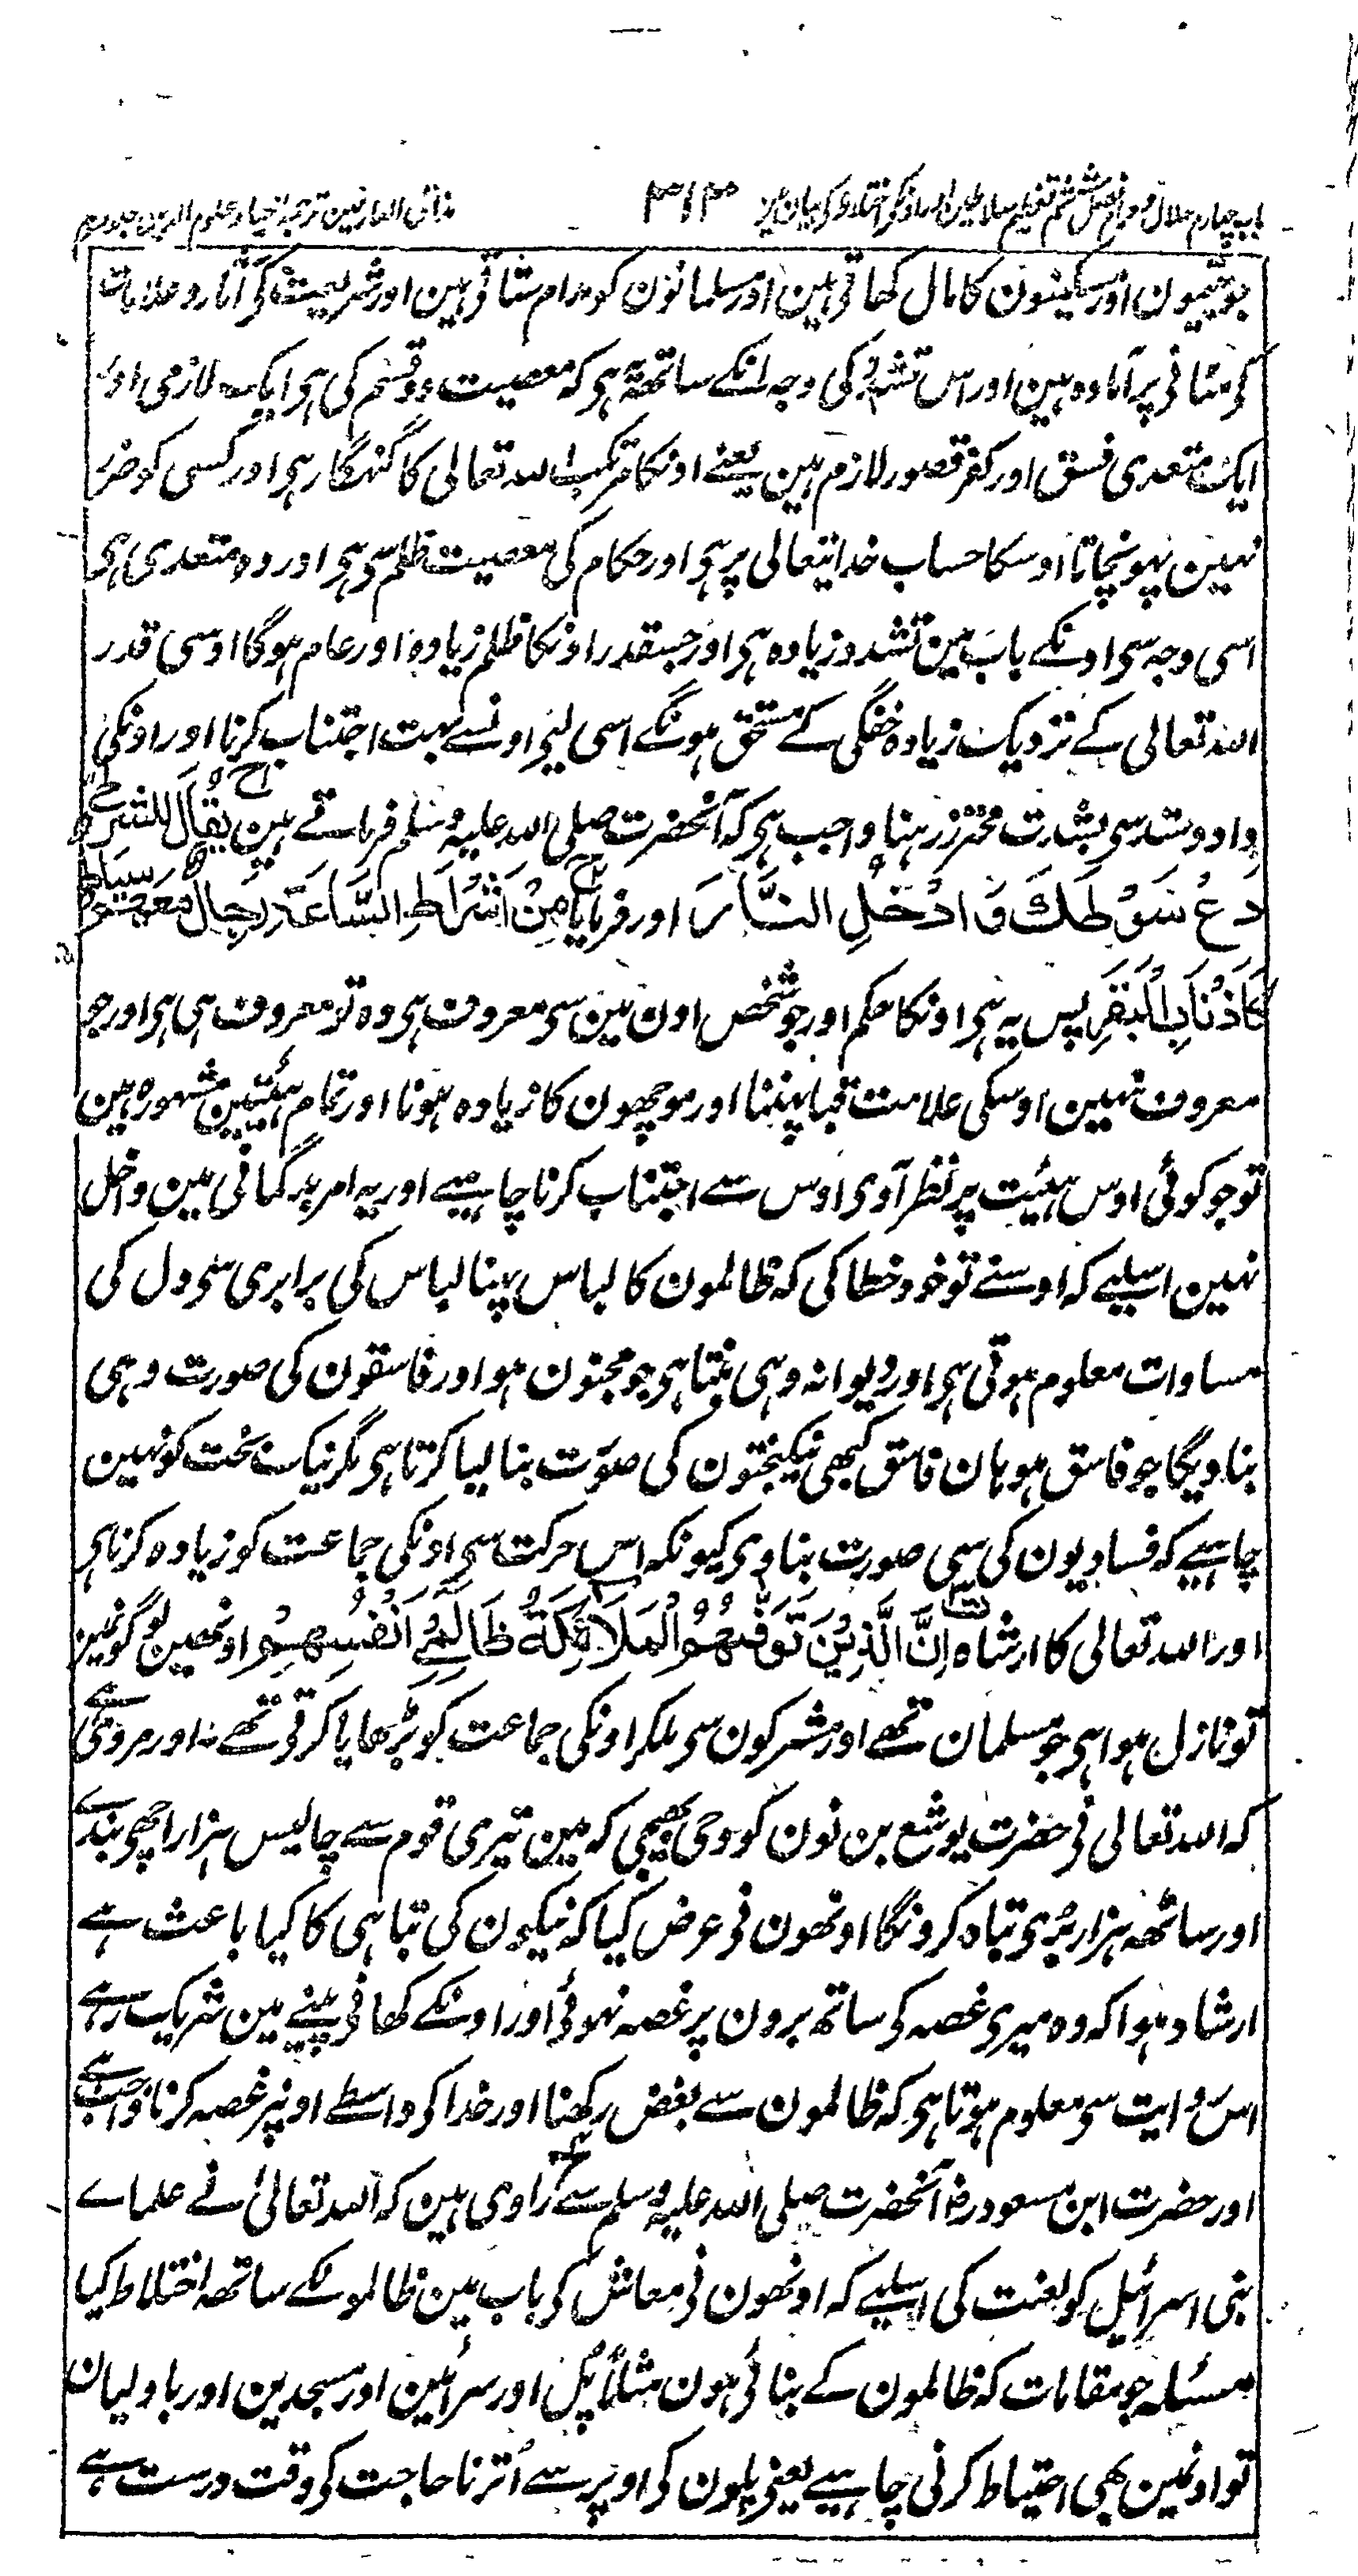 باب چہارم حلال و حرام فصل ششم تعظیم سلاطین اور اونکی اختلاط کی بیان مین ۳۱۳ مذاق العارفین ترجمۂ احیاء علوم الدین جلد دوم
جو یتیمون اور مسکینون کا مال کھاتی ہین اور مسلمانون کو مدام ستاتی ہین اور شریعت کی آثار و علامات
کی مٹانی پر آمادہ ہین اور اس تشدد کی وجہ انکے ساتھ یہ ہی کہ معصیت دو قسم کی ہی ایک لازمی اور
ایک متعدی فسق اور کفر قصور لازم ہین یعنے اونکا مرتکب اللہ تعالی کا گنہگار ہی اور کسی کو ضرر
نہین پہونچاتا اوسکا حساب خدایتعالی پر ہی اور حکام کی معصیت ظلم سی ہی اور وہ متعدی ہی
اسی وجہ سی اونکے باب مین تشدد زیادہ ہی اور جسقدر اونکا ظلم زیادہ اور عام ہوگا اوسی قدر
اللہ تعالی کے نزدیک زیادہ خفگی کے مستحق ہونگے اسی لیی اونسے بہت اجتناب کرنا اور اونکی
داد و ستد سی بشدت محترز رہنا واجب ہی کہ آنحضرت صلی اللہ علیہ وسلم فرماتے ہین یُقَالُ لِلشُّرَطِیِّ
دَعْ سَوْطَكَ وَادْخُلِ النَّارَ اور فرمایا مِنْ اَشْرَاطِ السَّاعَةِ رِجَالٌ مَعَهُمْ سِيَاطٌ
كَاَذْنَابِ الْبَقَرِ پس یہ ہی اونکا حکم اور جو شخص اون مین سی معروف ہی وہ تو معروف ہی ہی اور جو
معروف نہین اوسکی علامت قبا پہننا اور موچھون کا زیادہ ہونا اور تمام ہیئتین مشہورہ ہین
تو جو کوئی اوس ہیئت پر نظر آوی اوس سے اجتناب کرنا چاہیے اور یہ امر بدگمانی مین داخل
نہین اسلیے کہ اوسنے تو خود خطا کی کہ ظالمون کا لباس پہنا لباس کی برابری سی دل کی
مساوات معلوم ہوتی ہی اور دیوانہ وہی بنتا ہی جو مجنون ہو اور فاسقون کی صورت وہی
بناویگا جو فاسق ہو ہان فاسق کبھی نیکبختون کی صورت بنا لیا کرتا ہی مگر نیک بخت کو نہین
چاہیے کہ فسادیون کی سی صورت بناوی کیونکہ اس حرکت سی اونکی جماعت کو زیادہ کرنا ہی
اور اللہ تعالی کا ارشاد اِنَّ الَّذِيْنَ تَوَفّٰهُمُ الْمَلَائِكَةُ ظَالِمِيْ اَنْفُسِهِمْ اونھین لوگونمین
تو نازل ہوا ہی جو مسلمان تھے اور مشرکون سی ملکر اونکی جماعت کو بڑھایا کرتی تھے ۔ اور مروی ہے
کہ اللہ تعالی نی حضرت یوشع بن نون کو وحی بھیجی کہ مین تیری قوم سے چالیس ہزار اچھی بندے
اور ساٹھہ ہزار بُری تباہ کرونگا اونھون نی عرض کیا کہ نیکیون کی تباہی کا کیا باعث ہے
ارشاد ہوا کہ وہ میری غصہ کی ساتھ برون پر غصہ نہوئی اور اونکے کھانی پینے مین شریک رہے
اس روایت سی معلوم ہوتا ہی کہ ظالمون سے بغض رکھنا اور خدا کی واسطے اونپر غصہ کرنا واجب ہے
اور حضرت ابن مسعود رض آنحضرت صلی اللہ علیہ وسلم سے راوی ہین کہ اللہ تعالیٰ نے علماے
بنی اسرائیل کو لعنت کی اسلیے کہ اونھون نی معاش کی باب مین ظالمونکے ساتھہ اختلاط کیا
مسئلہ جو مقامات کہ ظالمون کے بنائی ہون مثلاً پُل اور سرائین اور مسجدین اور باولیان
تو اونمین بھی احتیاط کرنی چاہیے یعنی پلون کی اوپر سے اُترنا حاجت کی وقت درست ہے